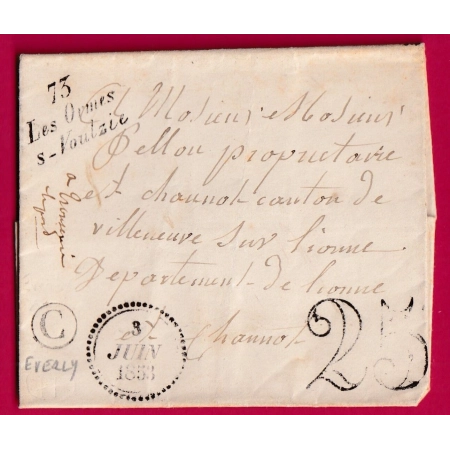 73
Les Ormes
s-Voulzie
A Mosieur Mosieur
Pellou propriétaire
est chaunot canton de
villeneuve sur lionne
Departement de lionne
et Chaunot
C
EVERLY
3
JUIN
1853
25